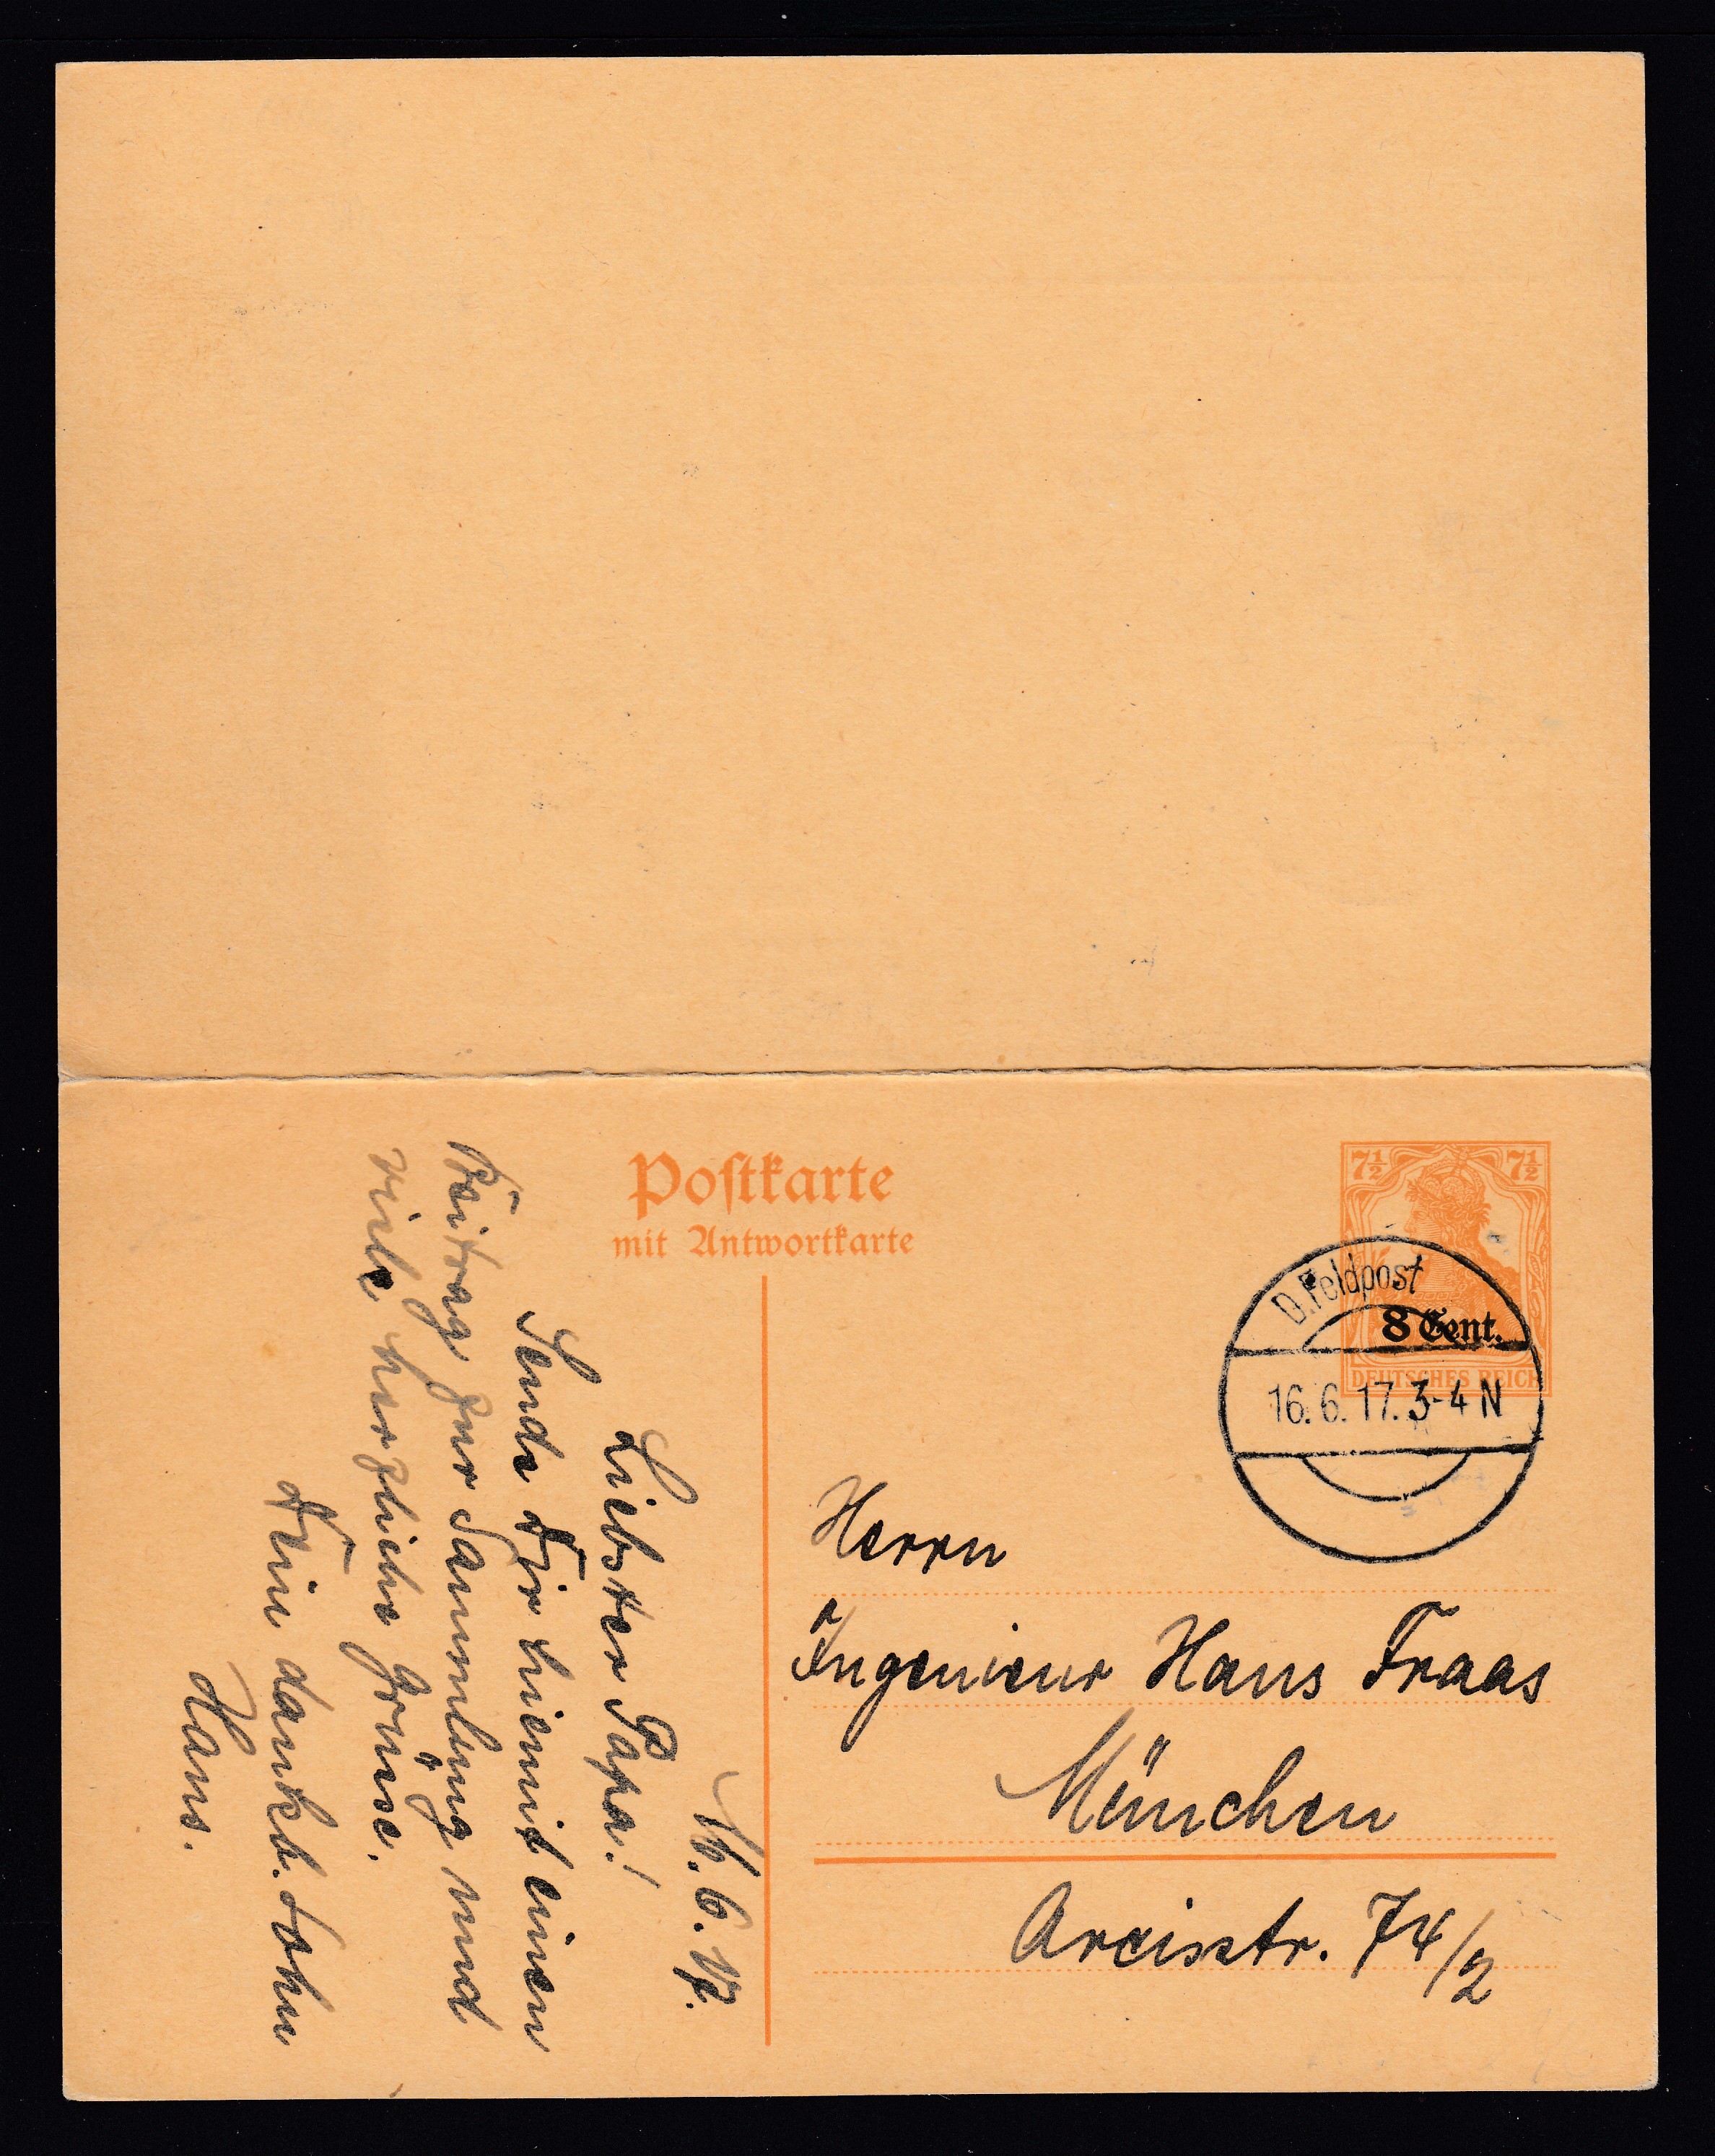 Postkarte
mit Antwortkarte
7½ 7½
DEUTSCHES REICH
8 Cent.
D. Feldpost
16. 6. 17. 3-4 N
Herrn
Ingenieur Hans Fraas
München
Arcisstr. 74/2
16. 6. 17.
Liebster Papa!
Sende Dir hiemit einen
Beitrag zur Sammlung und
viele herzliche Grüsse.
Dein dankb. Sohn
Hans.